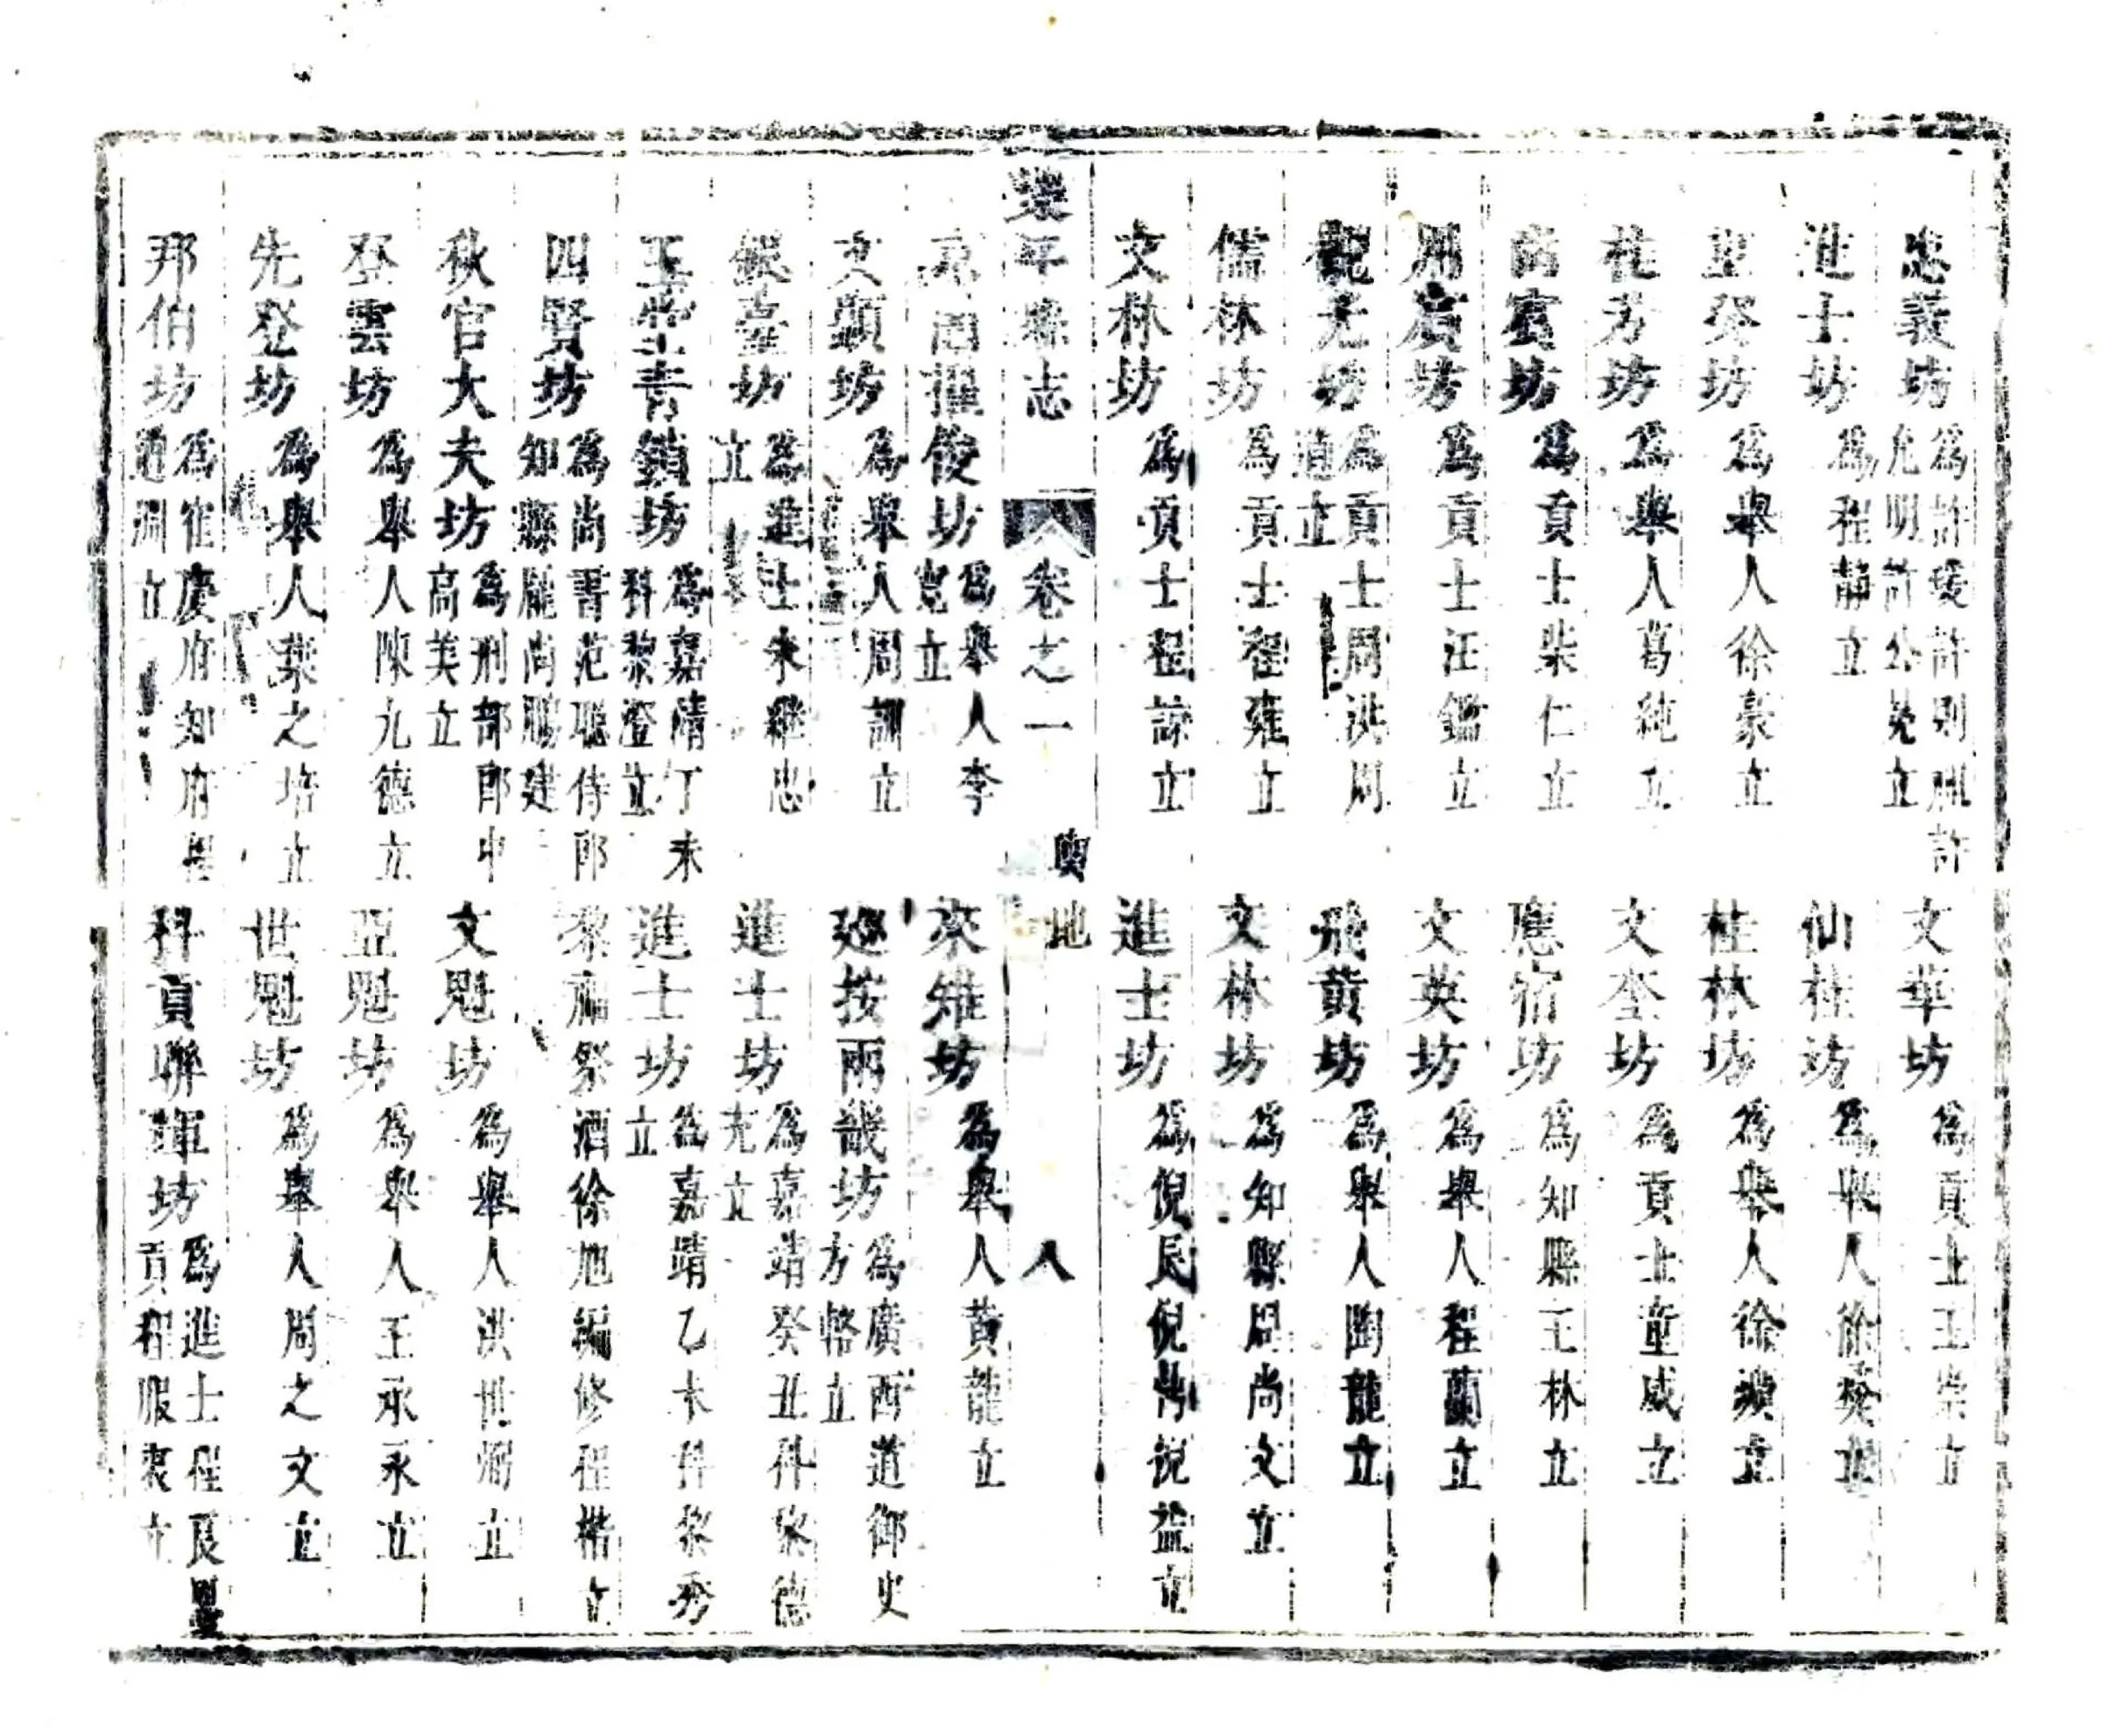 忠義坊 為許瑗許則祖許允明許公冕立 文華坊 為貢士王崇立
進士坊 為程靜立 仙桂坊 為舉人徐立
坊 為舉人徐豪立 桂林坊 為舉人徐立
桂芳坊 為舉人葛純立 文奎坊 為貢士童威立
賓坊 為貢士柴仁立 應宿坊 為知縣王林立
用賓坊 為貢士汪鑑立 文英坊 為舉人程蘭立
觀光坊 為貢士周洪周道立 飛黃坊 為舉人陶龍立
儒林坊 為貢士程雍立 文林坊 為知縣周尚文立
文林坊 為貢士程諒立 進士坊 為倪民倪倪益立
樂平縣志 卷之一 輿地 八
掇俊坊 為舉人李寬立 來雉坊 為舉人黃龍立
文顯坊 為舉人周訓立 廵按兩畿坊 為廣西道御史方立
銀臺坊 為進士朱繼忠立 進士坊 為嘉靖癸丑科黎德充立
玉堂青鎖坊 為嘉靖丁未科黎澄立 進士坊 為嘉靖乙未科黎秀立
四賢坊 為尚書范聰侍郎黎祭酒徐旭編修程楷立知縣龐尚鵬建
秋官大夫坊 為刑部郎中高美立 文魁坊 為舉人洪世立
登雲坊 為舉人陳九德立 亞魁坊 為舉人王永立
先登坊 為舉人葉之培立 世魁坊 為舉人周之文立
邦伯坊 為慶府知府程立 科貢聯輝坊 為進士程良貢程服立